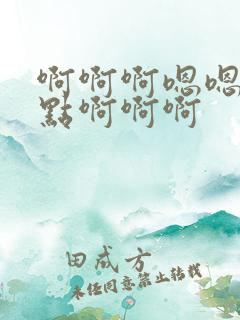 啊啊啊嗯嗯
點啊啊啊
田成方
未经同意禁止转载